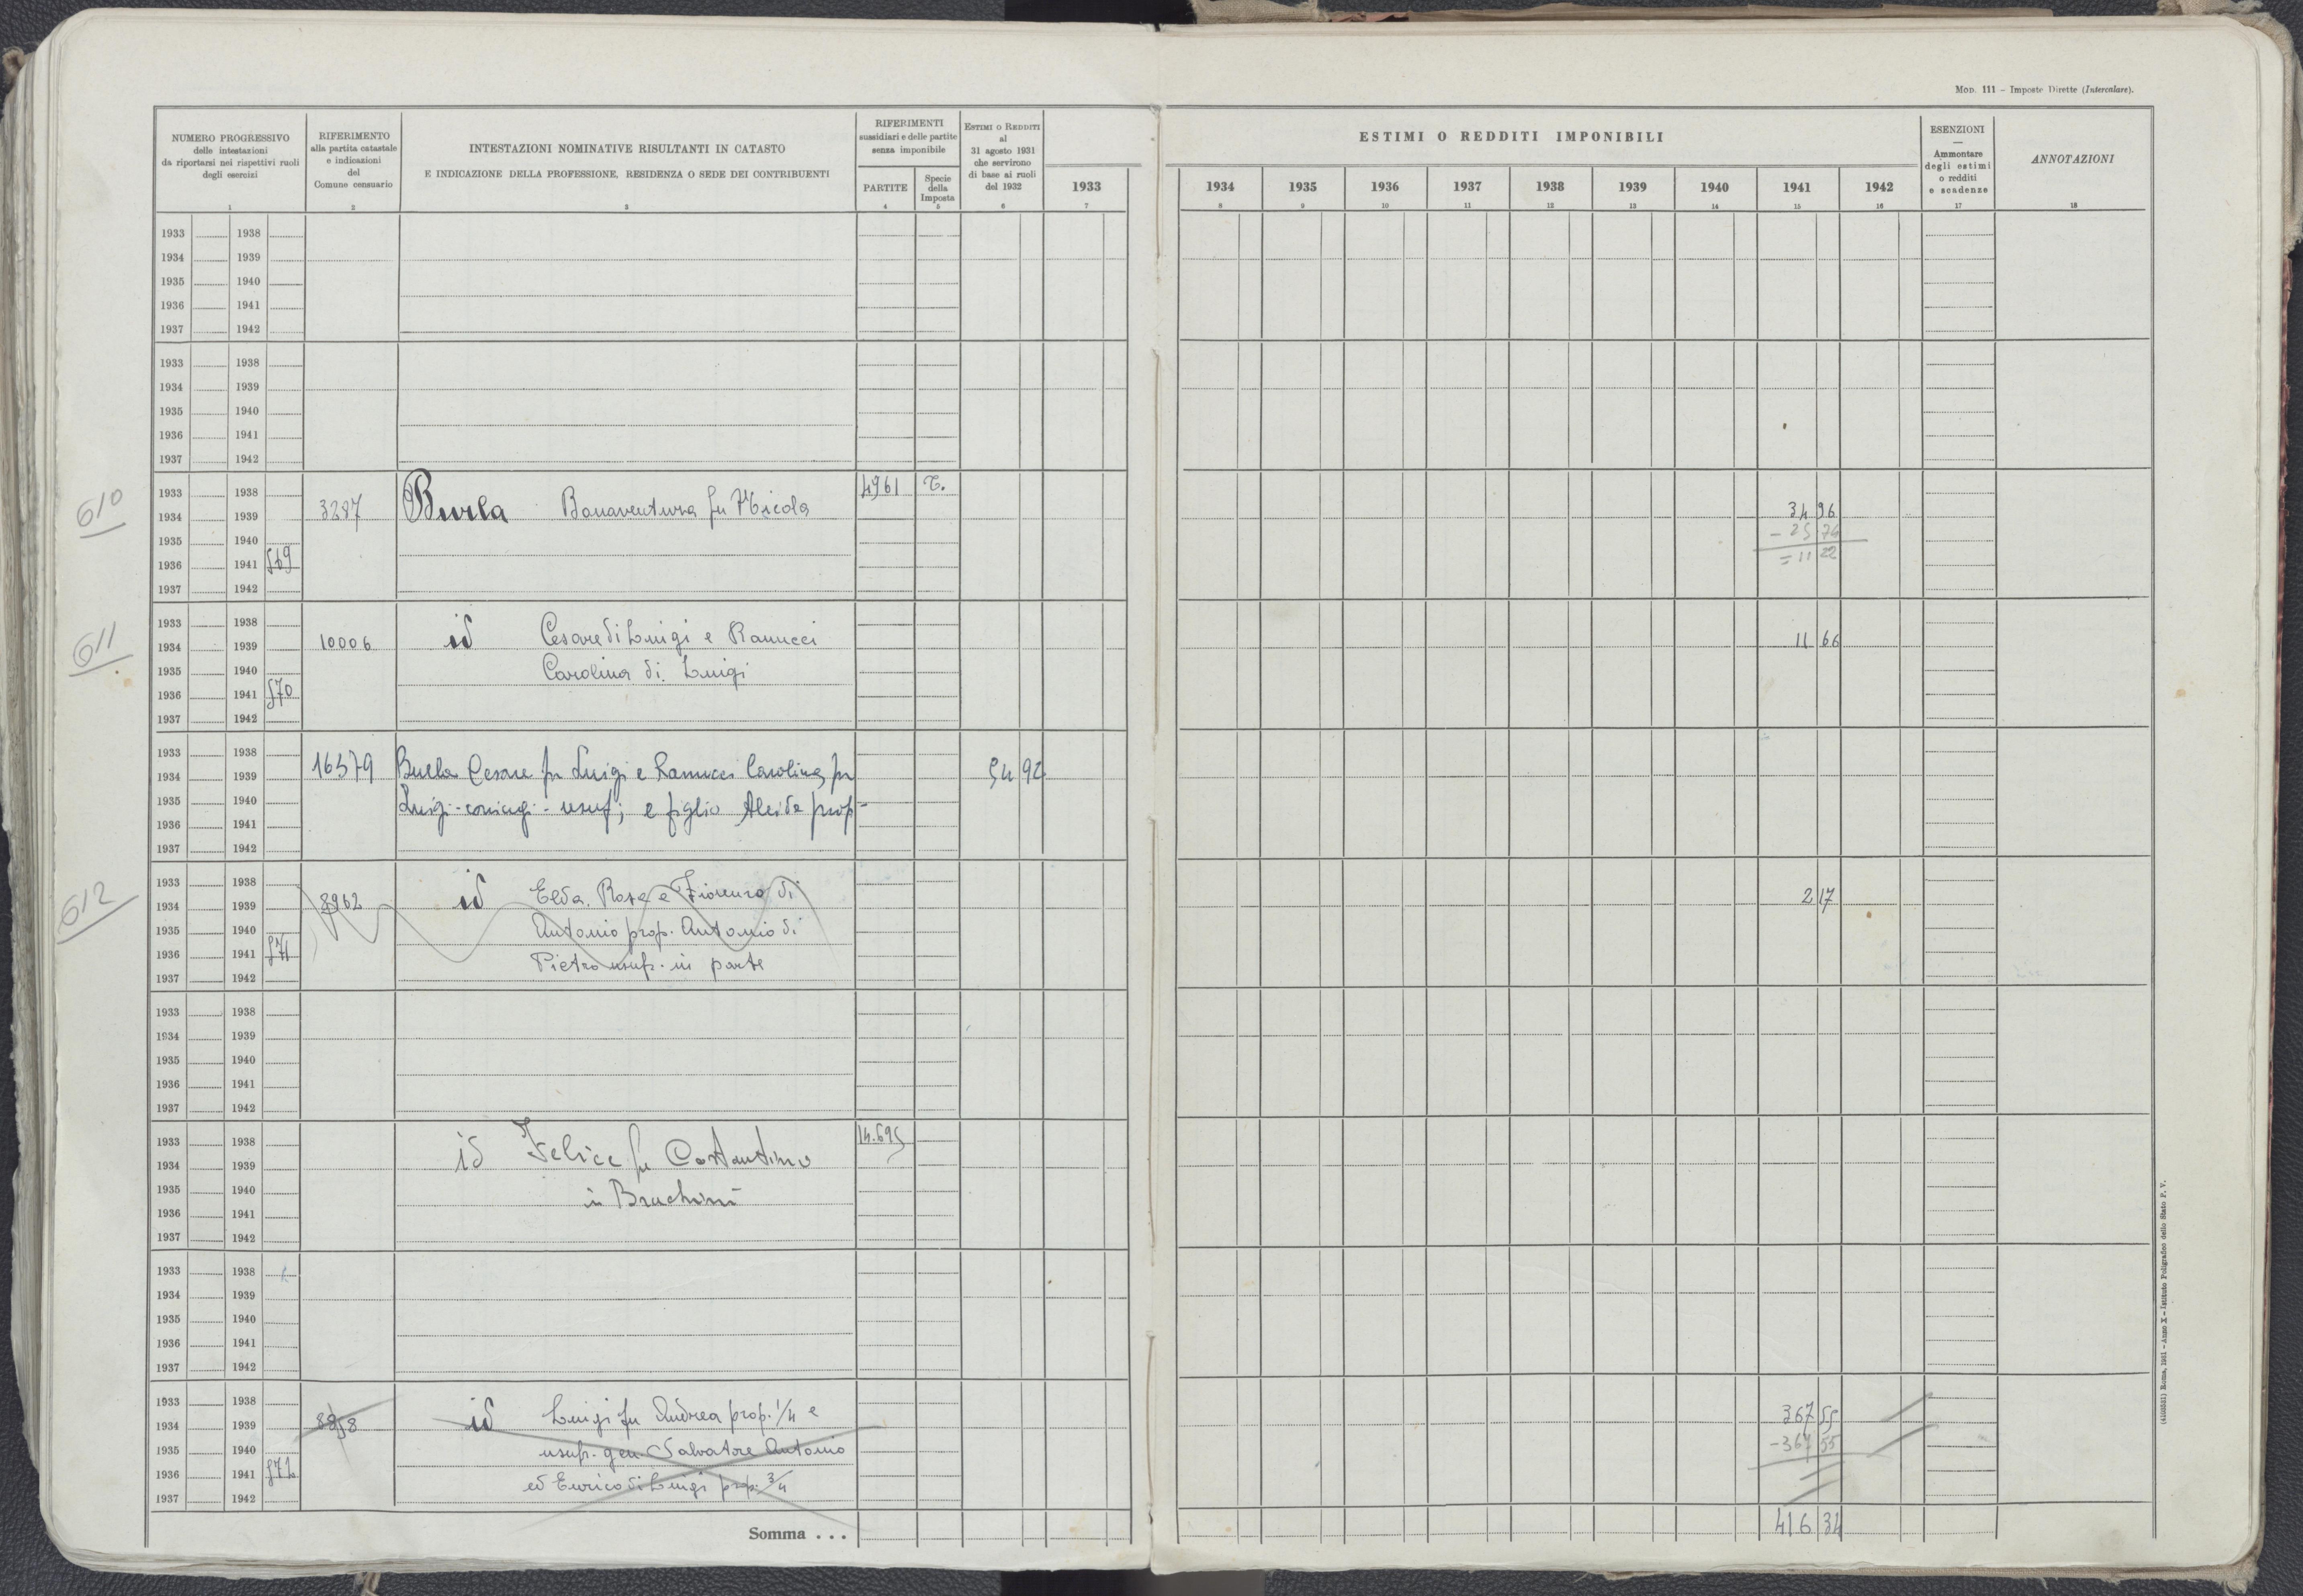 Mod. 111 – Imposte Dirette (Intercalare).
NUMERO PROGRESSIVO
delle intestazioni
da riportarsi nei rispettivi ruoli
degli esercizi
1
RIFERIMENTO
alla partita catastale
e indicazioni
del
Comune censuario
2
INTESTAZIONI NOMINATIVE RISULTANTI IN CATASTO
E INDICAZIONE DELLA PROFESSIONE, RESIDENZA O SEDE DEI CONTRIBUENTI
3
RIFERIMENTI
sussidiari e delle partite
senza imponibile
PARTITE
4
Specie
della
Imposta
5
ESTIMI O REDDITI
al
31 agosto 1931
che servirono
di base ai ruoli
del 1932
6
1933
7
ESTIMI O REDDITI IMPONIBILI
1934 1935 1936 1937 1938 1939 1940 1941 1942
8 9 10 11 12 13 14 15 16
ESENZIONI
—
Ammontare
degli estimi
o redditi
e scadenze
17
ANNOTAZIONI
18
1933 1938
1934 1939
1935 1940
1936 1941
1937 1942
1933 1938
1934 1939
1935 1940
1936 1941
1937 1942
610
1933 1938 4961 T.
1934 1939 3287 Burla Bonaventura fu Nicola 34 96
1935 1940 – 23 74
1936 1941 569 = 11 22
1937 1942
611
1933 1938
1934 1939 10006 id Cesare di Luigi e Ranucci 11 66
1935 1940 Carolina di Luigi
1936 1941 570
1937 1942
1933 1938
1934 1939 16579 Burla Cesare fu Luigi e Ranucci Carolina fu 54 92
1935 1940 Luigi - coniugi - usuf; e figlio Alcide prop-
1936 1941
1937 1942
612
1933 1938
1934 1939 8962 id Elda, Rosa e Fiorenzo di 2 17
1935 1940 Antonio prop. Antonio di
1936 1941 571
1937 1942 Pietro usuf. in parte
1933 1938
1934 1939
1935 1940
1936 1941
1937 1942
1933 1938 14.695
1934 1939 id Felice fu Costantino
1935 1940 in Bruchini
1936 1941
1937 1942
1933 1938
1934 1939
1935 1940
1936 1941
1937 1942
1933 1938
1934 1939 id Luigi fu Andrea prop. 1/4 e 367 55
1935 1940 usuf. gen Salvatore Antonio – 367 55
1936 1941 572 ed Enrico di Luigi prop. 3/4
1937 1942
Somma . . . 416 34
(4100331) Roma, 1931 – Anno X – Istituto Poligrafico dello Stato P. V.